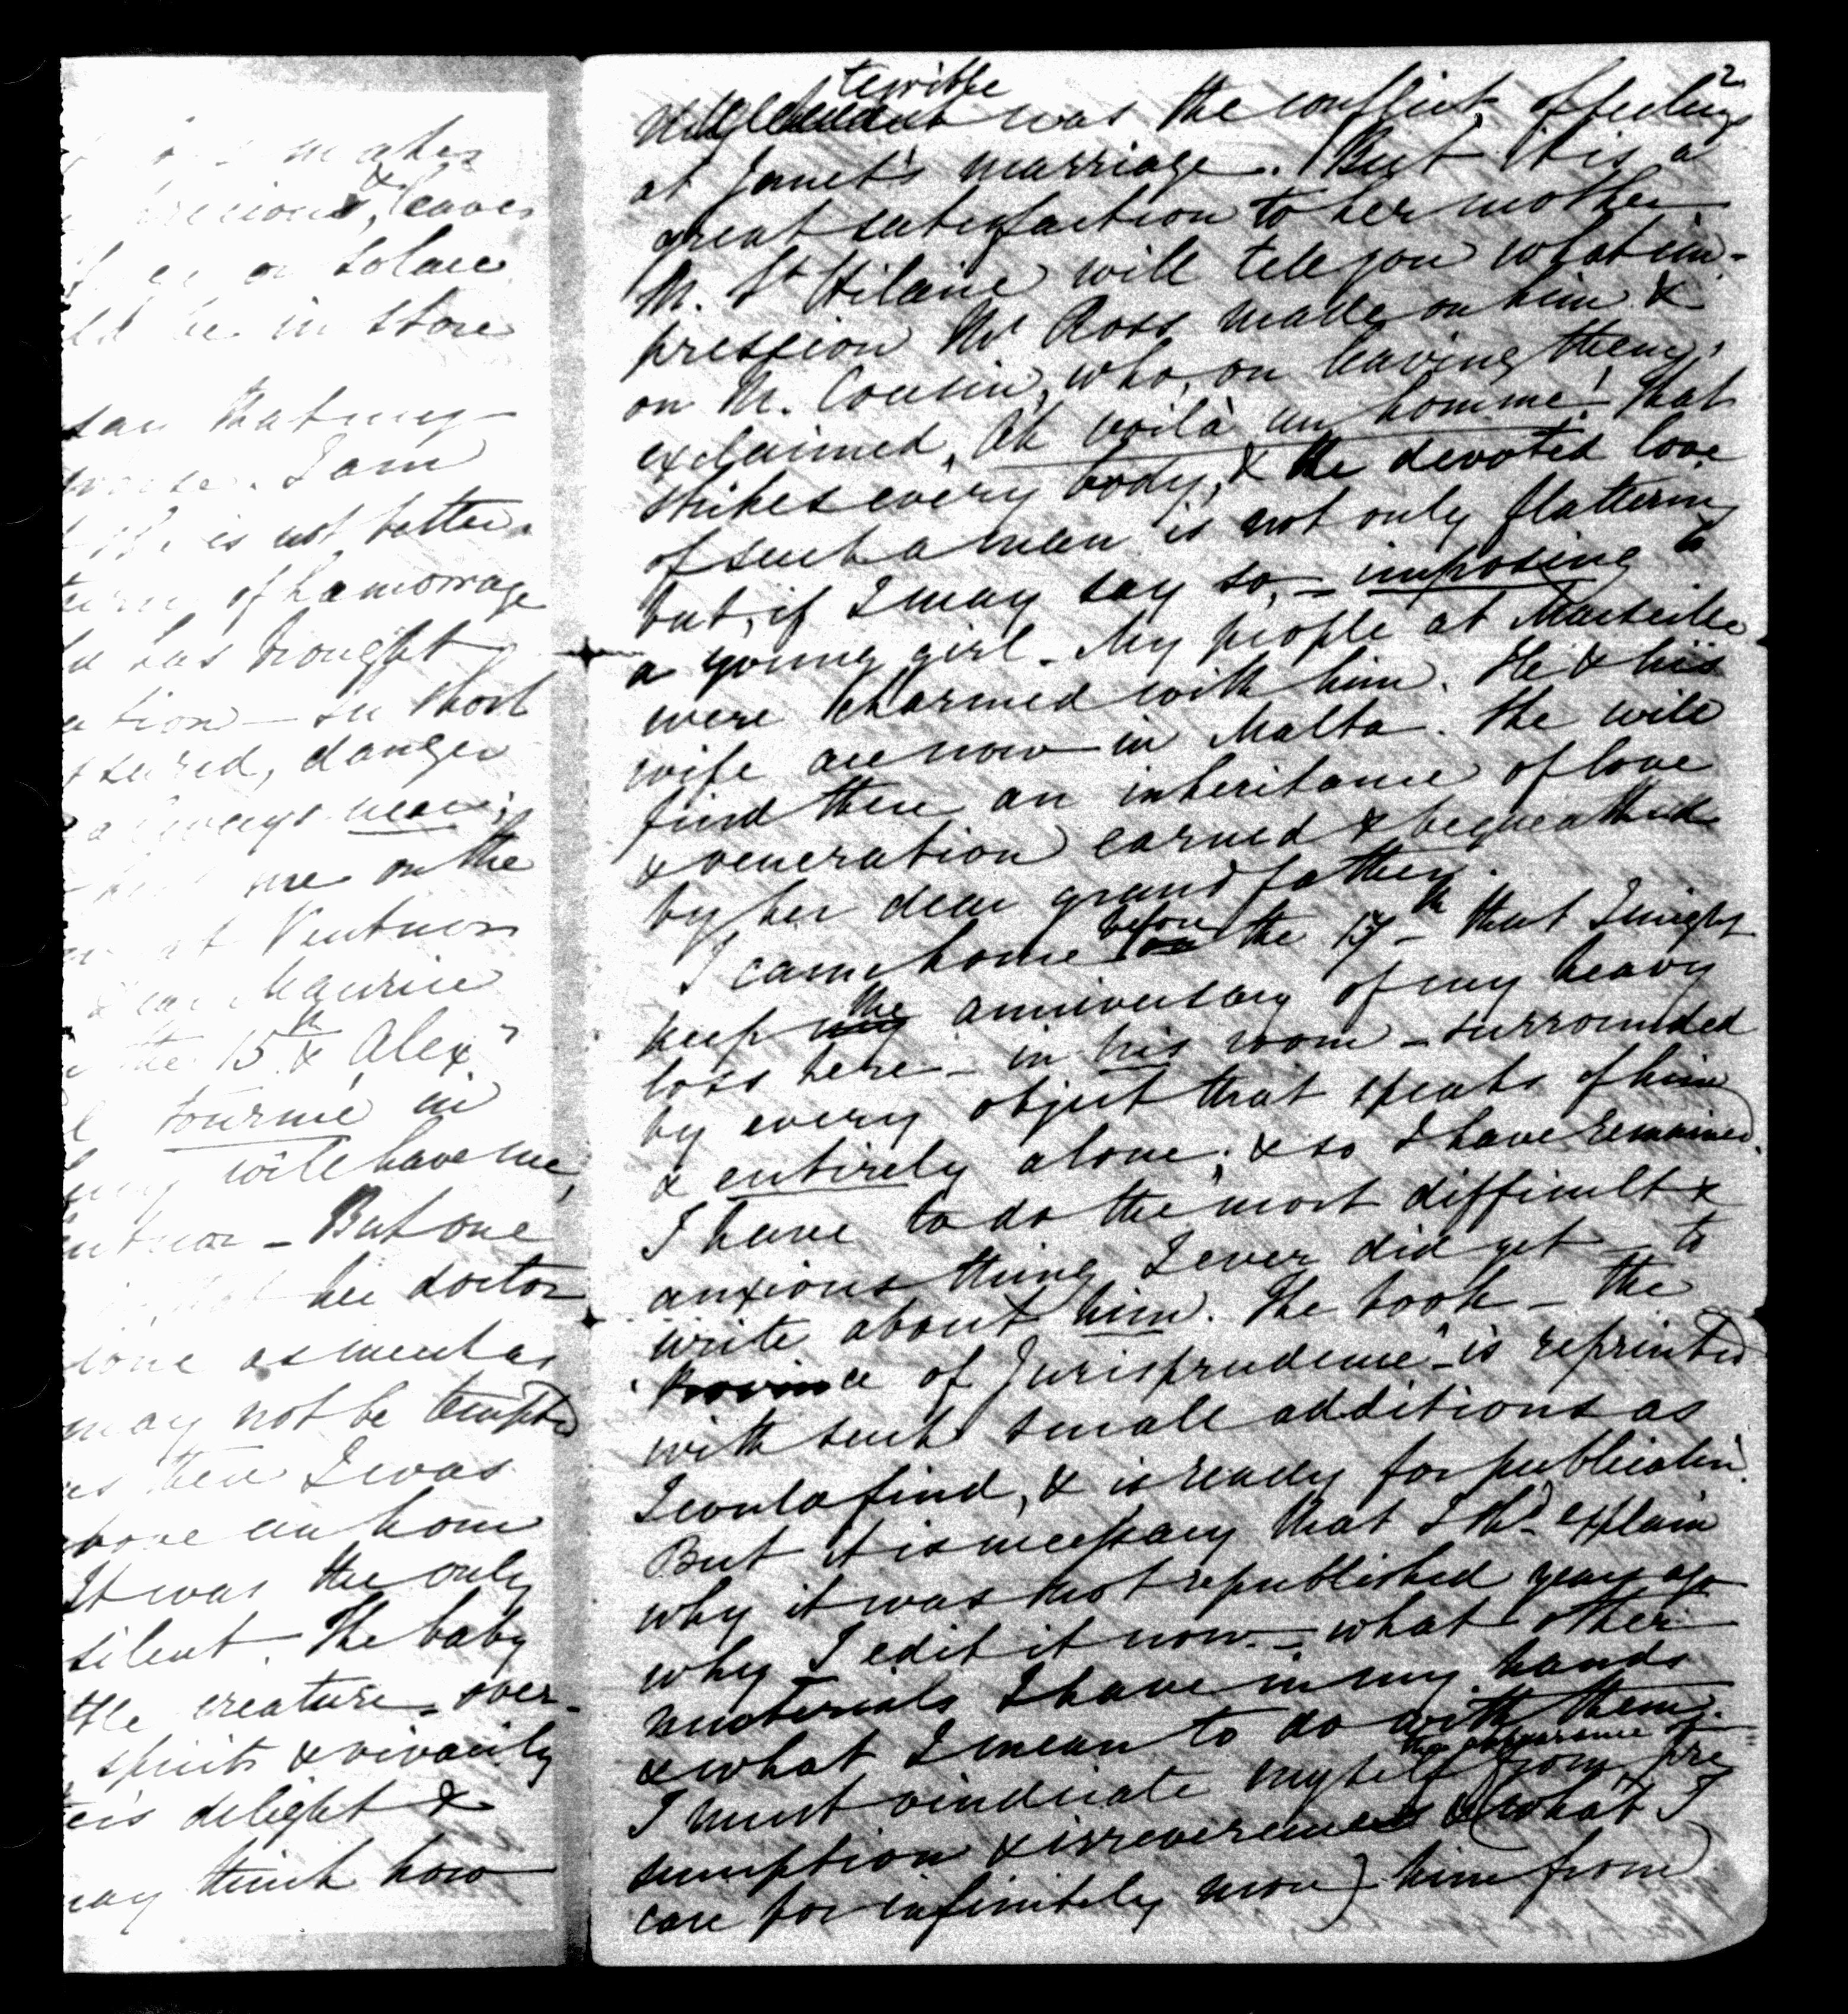 makes
&
leaves
or solace
be in store
say that my
worse. I am
is not better.
of hæmorrage
has brought
in short
danger
always near;
me on the
at Ventnor
dear Maurice
the 15th & Alexr
tourmé in
will have me,
But one
her doctor
done as much as
may not be tempted
then I was
above an hour
It was the only
silent. The baby
little creature, over-
spirits & vivacity
delight &
may think how
2
terrible
was the conflict of feelings
at Janet's marriage. But it is a
great satisfaction to her mother
M. St Hilaire will tell you what im-
pression Mr Ross made on him &
on M. Cousin, who, on leaving them,
exclaimed, Ah voilà un homme! That
strikes every body, & the devoted love
of such a man is not only flattering
but, if I may say so, – imposing to
a young girl. My people at Marseilles
were charmed with him. He & his
wife are now in Malta. She will
find there an inheritance of love
& veneration earned & bequeathed
by her dear grandfather.
before
I came home on the 17th that I might
the
keep my anniversary of my heavy
loss here – in his room – surrounded
by every object that speaks of him
& entirely alone; & so I have remained.
I have to do the most difficult &
anxious thing I ever did yet – to
write about him. The book – the
"Province of Jurisprudence" – is reprinted
with such small additions as
I could find, & is ready for publication.
But it is necessary that I shd explain
why it was not republished years ago
why I edit it now – what other
materials I have in my hands
& what I mean to do with them.
the appearance of
I must vindicate myself from pre
sumption & irreverence & (what I
care for infinitely more) him from